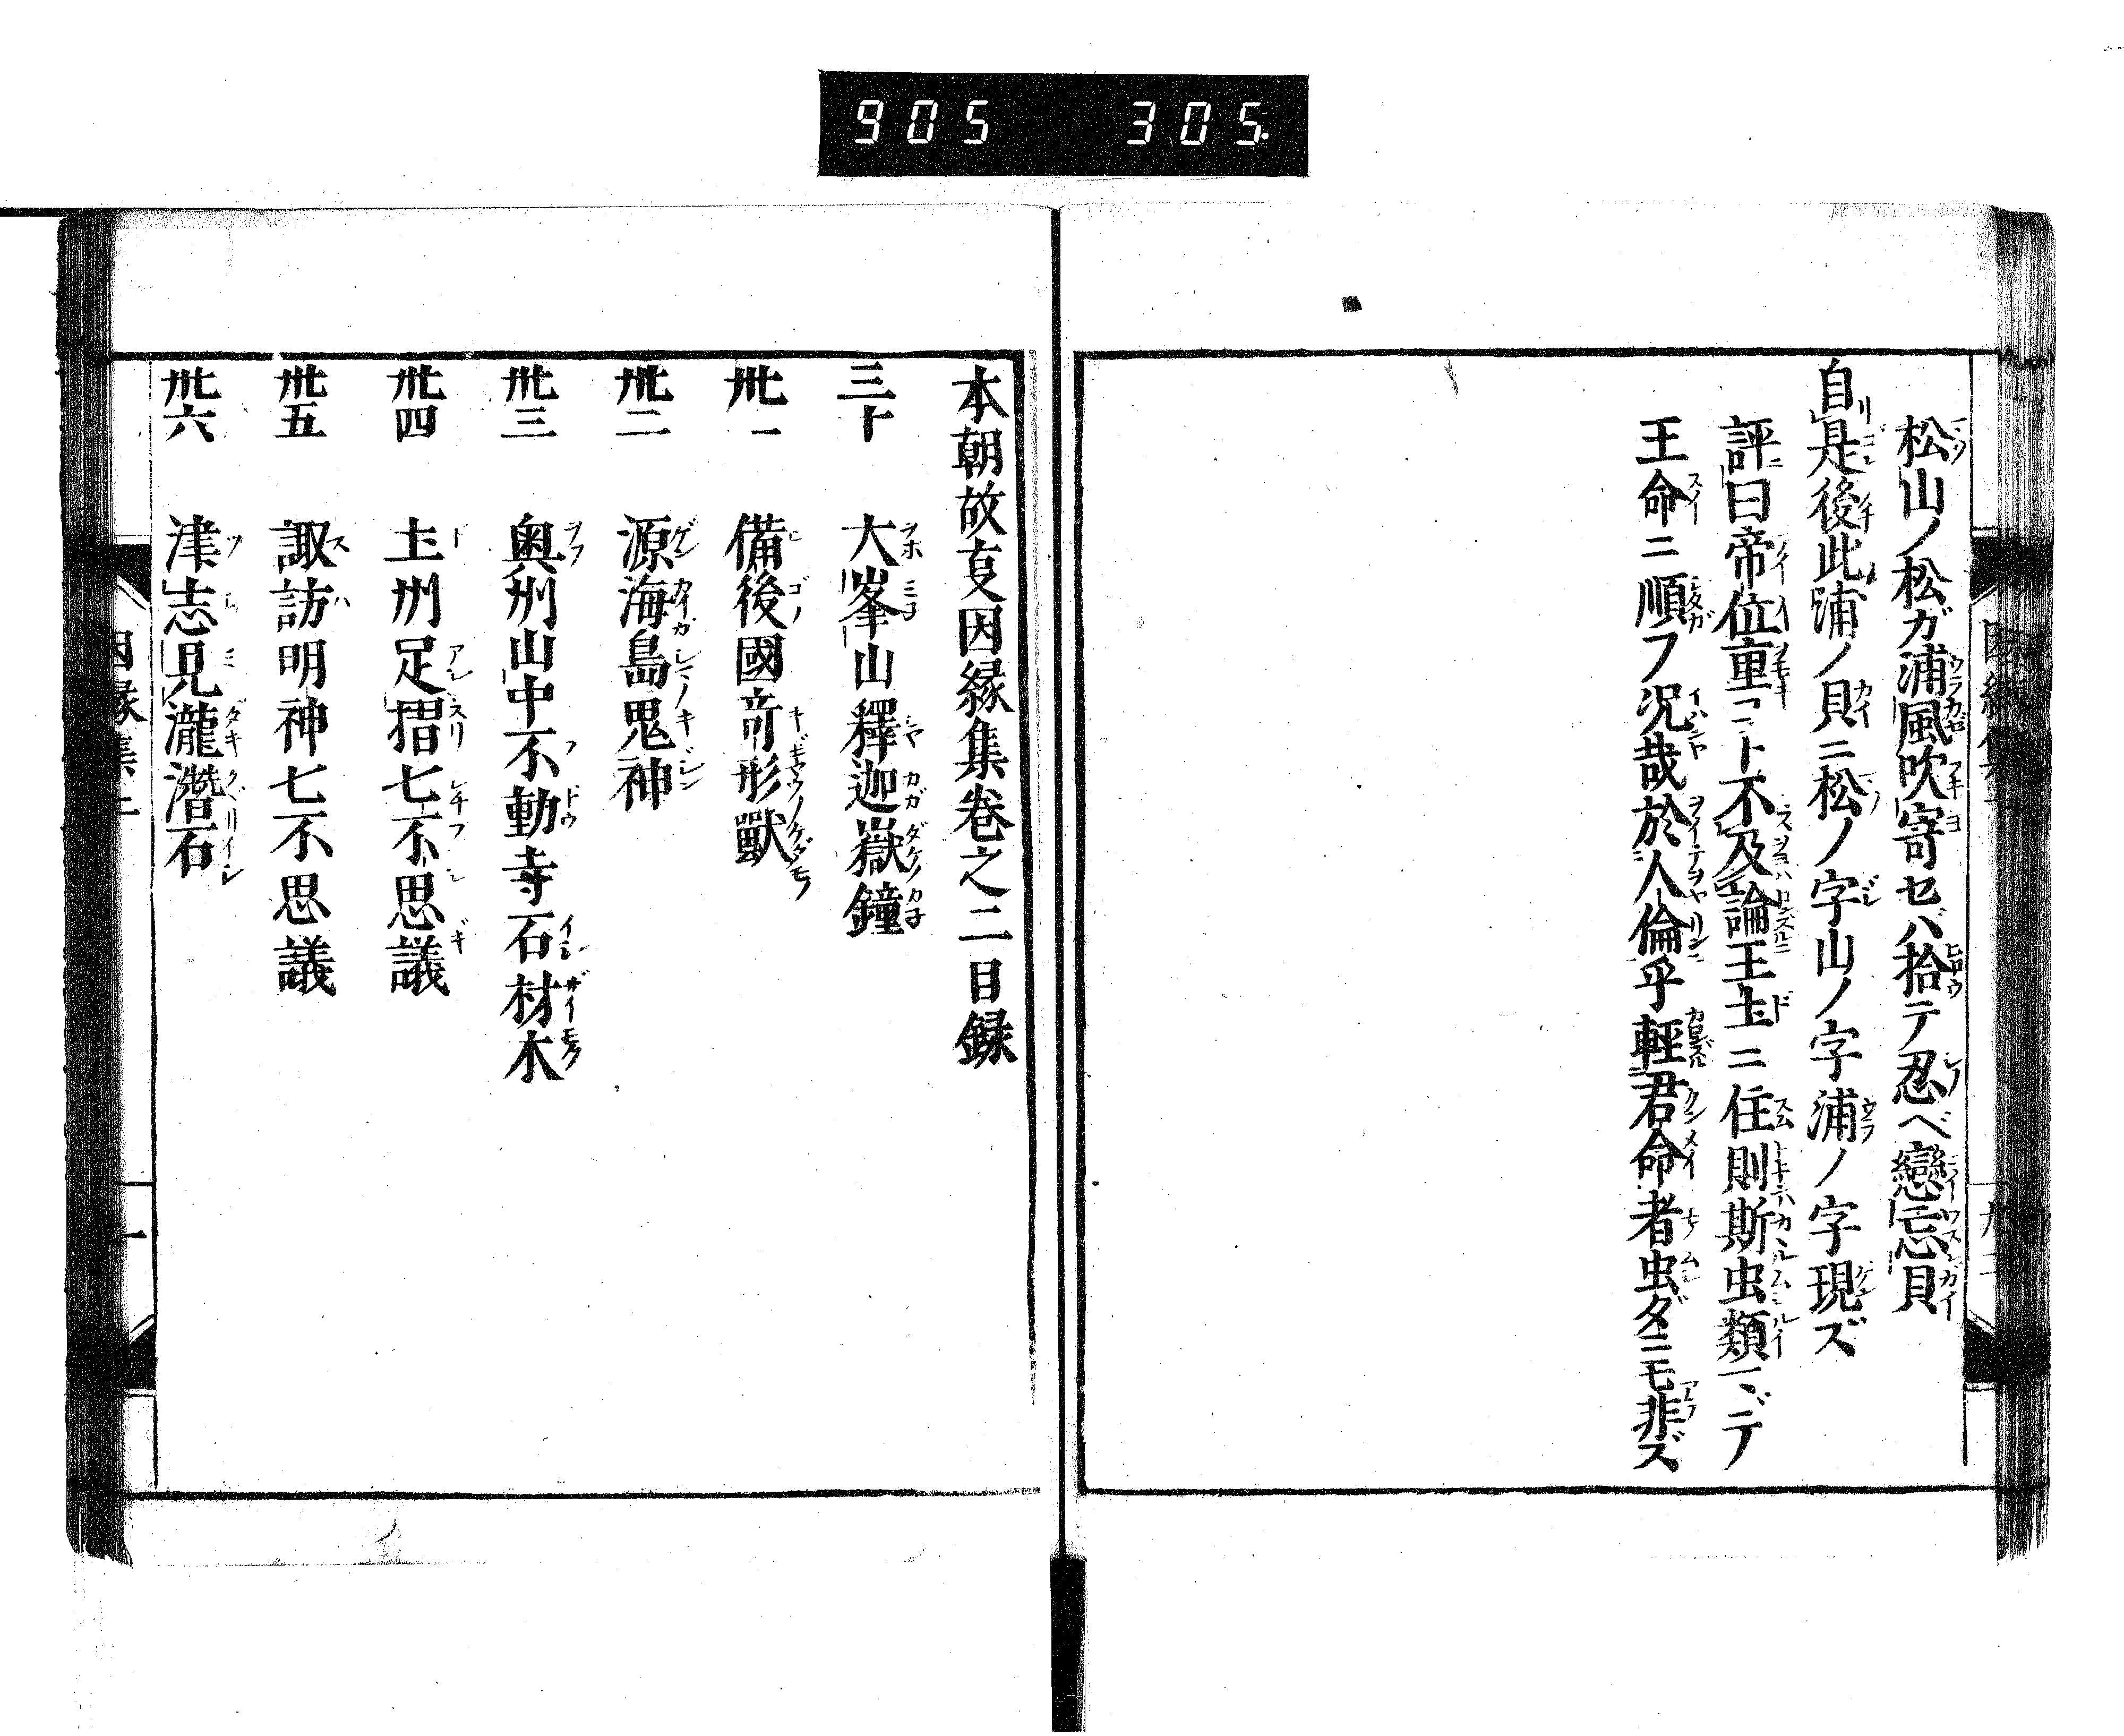 905 305
松山ノ松ガ浦風吹寄セバ拾テ忍ベ戀忘貝
自是後此浦ノ貝ニ松ノ字山ノ字浦ノ字現ズ
評曰帝位重コト不及論王土ニ住則斯虫類マデ
王命ニ順フ况哉於人倫乎輕君命者虫ダニモ非ズ
本朝故叓因縁集巻之二目録
三十 大峯山釋迦嶽鐘
卅一 備後國竒形獸
卅二 源海島鬼神
卅三 奥州山中不動寺石材木
卅四 土州足摺七不思議
卅五 諏訪明神七不思議
卅六 津志見瀧潛石